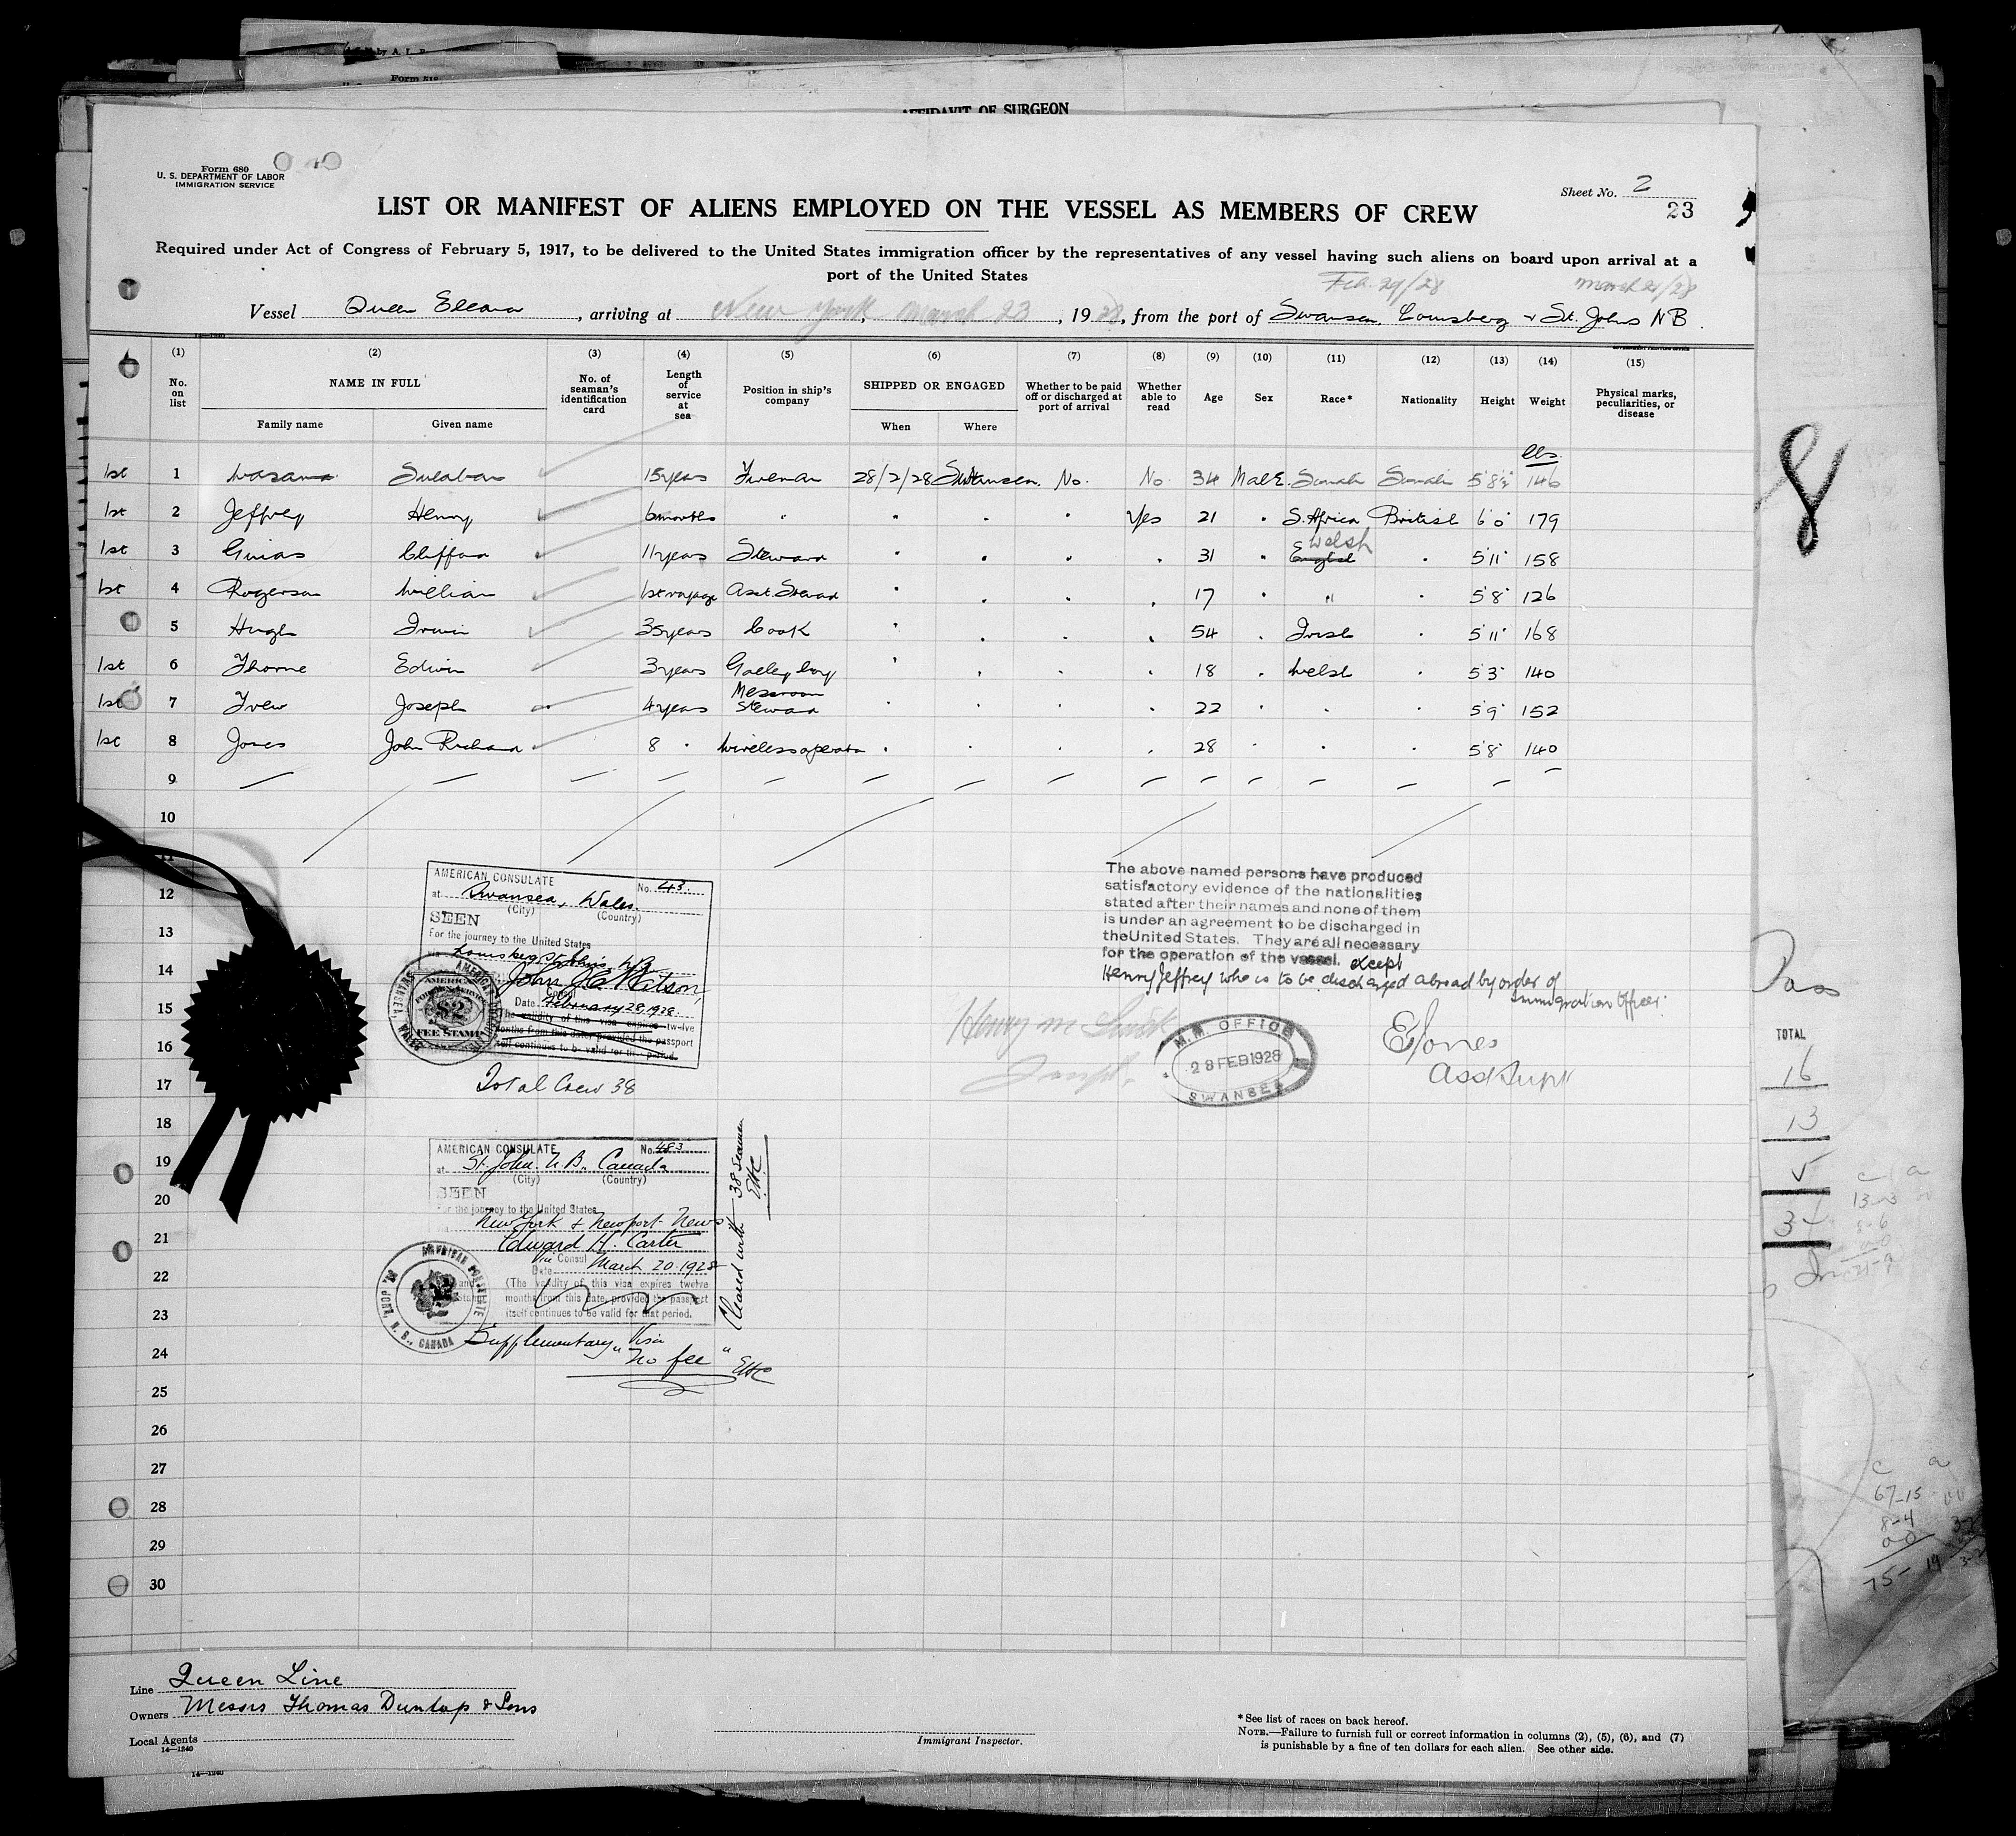 AFFIDAVIT OF SURGEON
Form 680
U. S. DEPARTMENT OF LABOR
IMMIGRATION SERVICE
Sheet No. 2
23
LIST OR MANIFEST OF ALIENS EMPLOYED ON THE VESSEL AS MEMBERS OF CREW
Required under Act of Congress of February 5, 1917, to be delivered to the United States immigration officer by the representatives of any vessel having such aliens on board upon arrival at a
port of the United States
Feb. 29/28 March 21/28
Vessel Queen Eleana, arriving at New York, March 23, 1928, from the port of Swansea, Louisberg & St. Johns NB.
(1) (2) (3) (4) (5) (6) (7) (8) (9) (10) (11) (12) (13) (14) (15)
No. on list NAME IN FULL Family name Given name No. of seaman's identification card Length of service at sea Position in ship's company SHIPPED OR ENGAGED When Where Whether to be paid off or discharged at port of arrival Whether able to read Age Sex Race* Nationality Height Weight Physical marks, peculiarities, or disease
lbs.
1st 1 15 years Fireman 28/2/28 Swansea. No. No 34 Male. Somali Somali 5'8½" 146
1st 2 Jeffrey Henry 6 months " " " " Yes 21 " S. Africa British 6'0" 179
Welsh
1st 3 Clifford 11 years Steward " " " " 31 " English " 5'11" 158
1st 4 Rogerson William 1st voyage Asst. Steward " " " " 17 " " " 5'8" 126
5 Hugh Irwin 35 years Cook " " " " 54 " Irish " 5'11" 168
1st 6 Thorne Edwin 3 years Galley boy " " " " 18 " Welsh " 5'3" 140
1st 7 Joseph 4 years Messroom Steward " " " " 22 " " " 5'9" 152
1st 8 Jones John Richard 8 " Wireless operator " " " " 28 " " " 5'8" 140
9
10
11
12
13
14
15
16
17
18
19
20
21
22
23
24
25
26
27
28
29
30
AMERICAN CONSULATE No. 43.
at Swansea, Wales.
(City) (Country)
SEEN
For the journey to the United States
via Louisberg, St. Johns, N.B.
John J. C. Watson,
Consul
Date February 28, 1928.
The validity of this visa expires twelve
months from this date, provided the passport
itself continues to be valid for this period.
AMERICAN FOREIGN SERVICE $2 FEE STAMP
SWANSEA, WALES
Total Crew 38
The above named persons have produced
satisfactory evidence of the nationalities
stated after their names and none of them
is under an agreement to be discharged in
the United States. They are all necessary
for the operation of the vessel. except
Henry Jeffrey who is to be discharged abroad by order of
Immigration Officer.
E Jones
Asst Supt
M. M. OFFICE
28 FEB 1928
SWANSEA
AMERICAN CONSULATE No. 483
at St. John. N. B. Canada
(City) (Country)
SEEN
For the journey to the United States
New York & Newport News
Edward H. Carter
Vice Consul
Date March 20. 1928
(The validity of this visa expires twelve
months from this date, provided the passport
itself continues to be valid for that period.
AMERICAN CONSULATE ST. JOHN, N. B., CANADA
Supplementary Visa
"No fee" EHC
Cleared with 38 seamen
EHC
Line Queen Line
Owners Messrs Thomas Dunlop & Sons
Local Agents
14—1240
Immigrant Inspector.
*See list of races on back hereof.
NOTE.—Failure to furnish full or correct information in columns (2), (5), (6), and (7)
is punishable by a fine of ten dollars for each alien. See other side.
8
TOTAL
16
13
14—1240